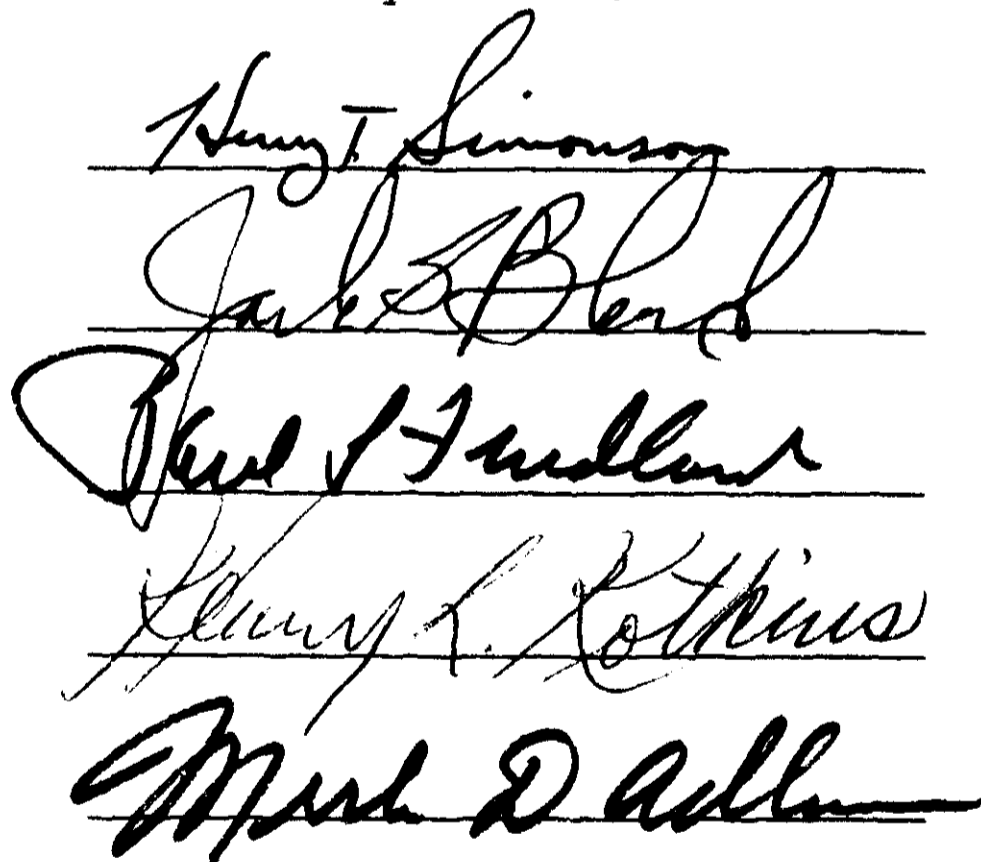 Henry T. Simonson
Jack B
Paul S Friedlund
Henry L. Kotkins
Mark D Adl